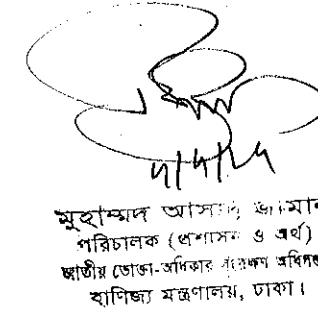 মুহাম্মদ জামান
পরিচালক (প্রশাসন ও অর্থ)
জাতীয় ভোক্তা-অধিকার সংরক্ষণ অধিদপ্তর
বাণিজ্য মন্ত্রণালয়, ঢাকা।